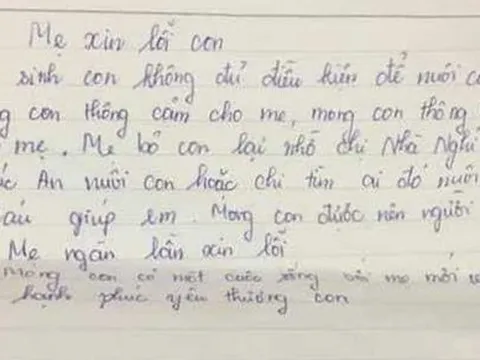 Mẹ xin lỗi con
sinh con không đủ điều kiện để nuôi c
g con thông cảm cho mẹ, mong con thông
mẹ. Mẹ bỏ con lại nhờ chị Nhà Nghỉ
An nuôi con hoặc chị tìm ai đó nuôi
giúp em. Mong con được nên người
Mẹ ngàn lần xin lỗi
Mong con có một cuộc sống với mẹ mới
hạnh phúc yêu thương con